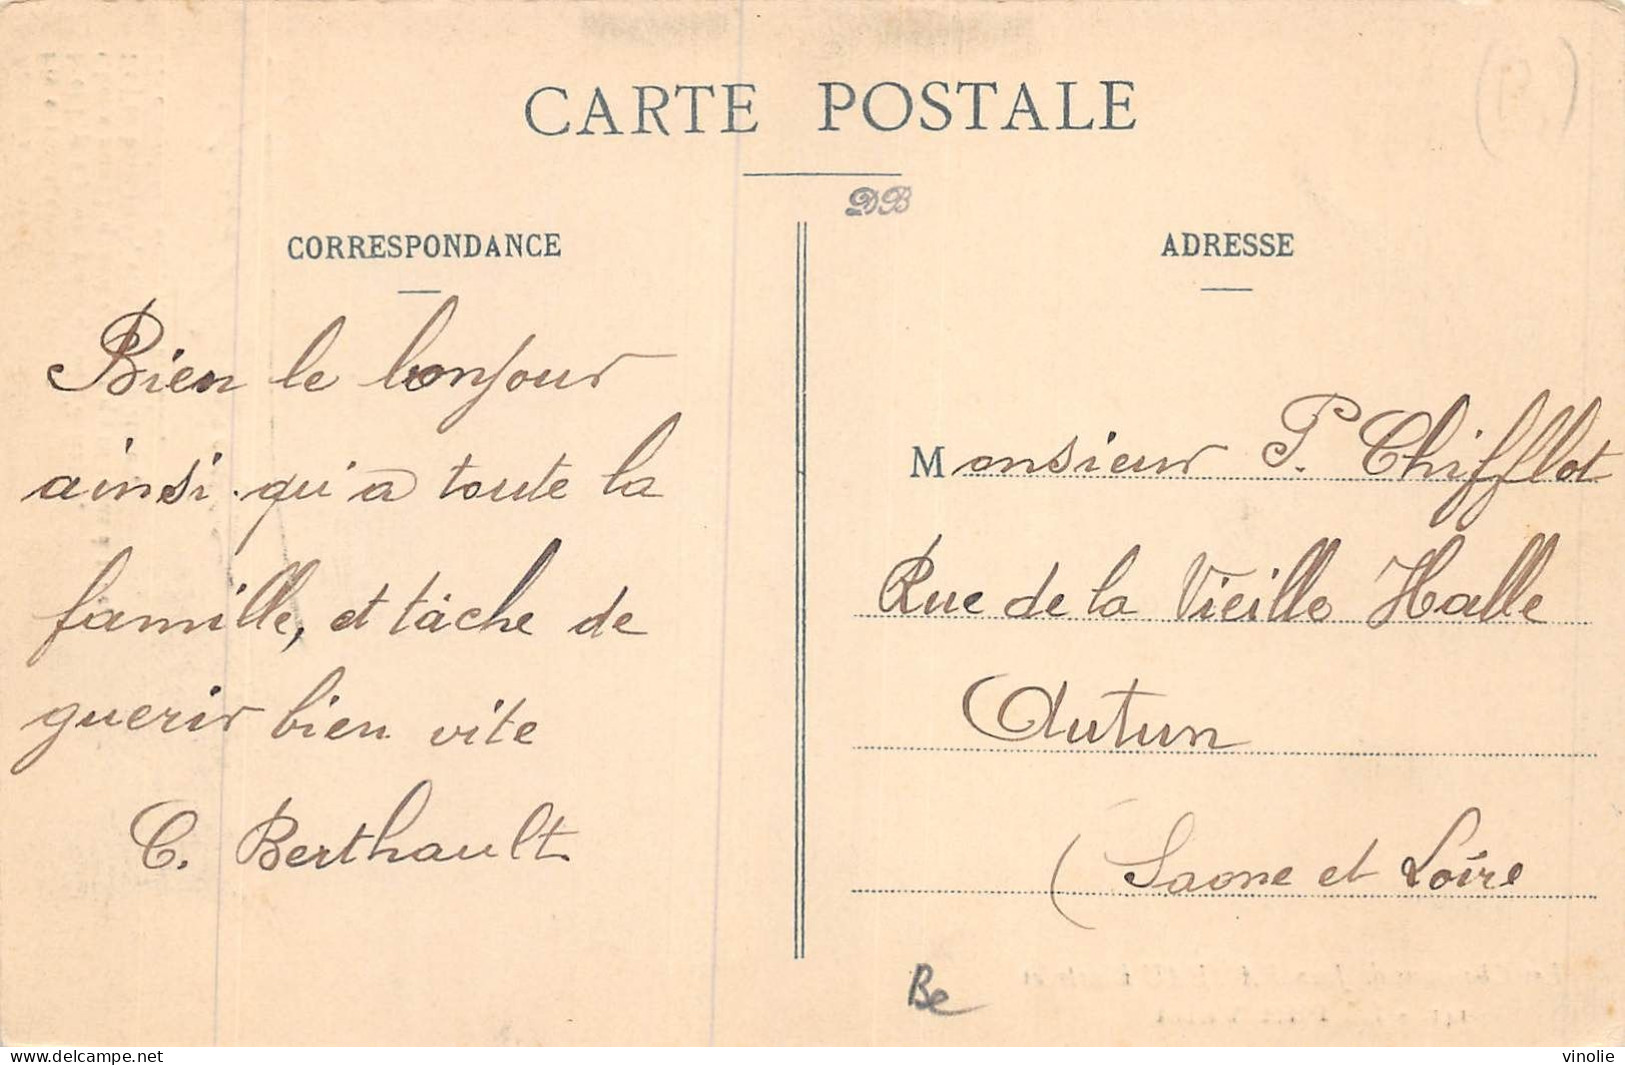 CARTE POSTALE
DB
CORRESPONDANCE
Bien le bonjour
ainsi qu'a toute la
famille, et tâche de
guerir bien vite
C. Berthault
ADRESSE
Monsieur P. Chifflot
Rue de la Vieille Halle
Autun
(Saone et Loire
Be
delcampe.net
vinolie